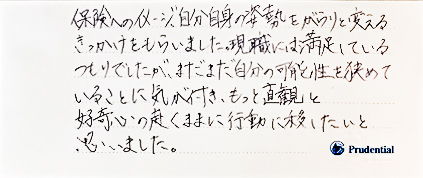 保険へのイメージ自分自身の姿勢をがらりと変える
きっかけをもらいました。現職には満足している
つもりでしたが、まだまだ自分の可能性を狭めて
いることに気が付き、もっと直観と
好奇心の赴くままに行動に移したいと
思いました。
Prudential